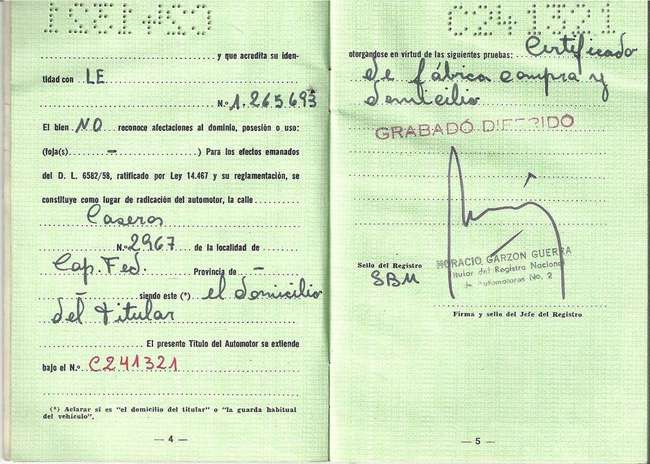 C241321
y que acredita su iden-
tidad con LE
N.º 1.265.693
El bien NO reconoce afectaciones al dominio, posesión o uso:
(foja(s) — ) Para los efectos emanados
del D. L. 6582/58, ratificado por Ley 14.467 y su reglamentación, se
constituye como lugar de radicación del automotor, la calle
Caseros
N.º 2967 de la localidad de
Cap. Fed. Provincia de —
— siendo este (*) el domicilio
del titular
El presente Título del Automotor se extiende
bajo el N.º C241321
(*) Aclarar si es "el domicilio del titular" o "la guarda habitual
del vehículo".
— 4 —
C241321
otorgándose en virtud de las siguientes pruebas: Certificado
de fábrica compra y
domicilio
GRABADO DIFERIDO
HORACIO GARZON GUERRA
Titular del Registro Nacional
de Automotores No. 2
Sello del Registro
SBM
Firma y sello del Jefe del Registro
— 5 —